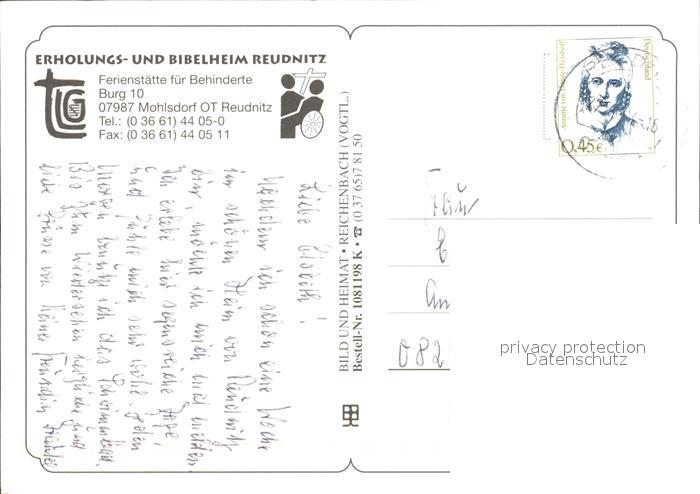 ERHOLUNGS- UND BIBELHEIM REUDNITZ
Ferienstätte für Behinderte
Burg 10
07987 Mohlsdorf OT Reudnitz
Tel.: (0 36 61) 44 05-0
Fax: (0 36 61) 44 05 11
Liebe
Nachdem ich schon eine Woche
im schönen Heim von Reudnitz
bin, möchte ich mich mal melden.
Ich erlebe hier segensreiche Tage
und fühle mich sehr wohl. Jeden
Morgen benutze ich das Schwimmbad.
Bis zum Wiedersehen herzliche und
liebe Grüße von Deiner Freundin
BILD UND HEIMAT • REICHENBACH (VOGTL.)
Bestell-Nr. 1081198 K • ☎ (0 37 65) 7 81 50
Annette von Droste-Hülshoff
Deutschland
0,45€
Frau
E
An
082
privacy protection
Datenschutz